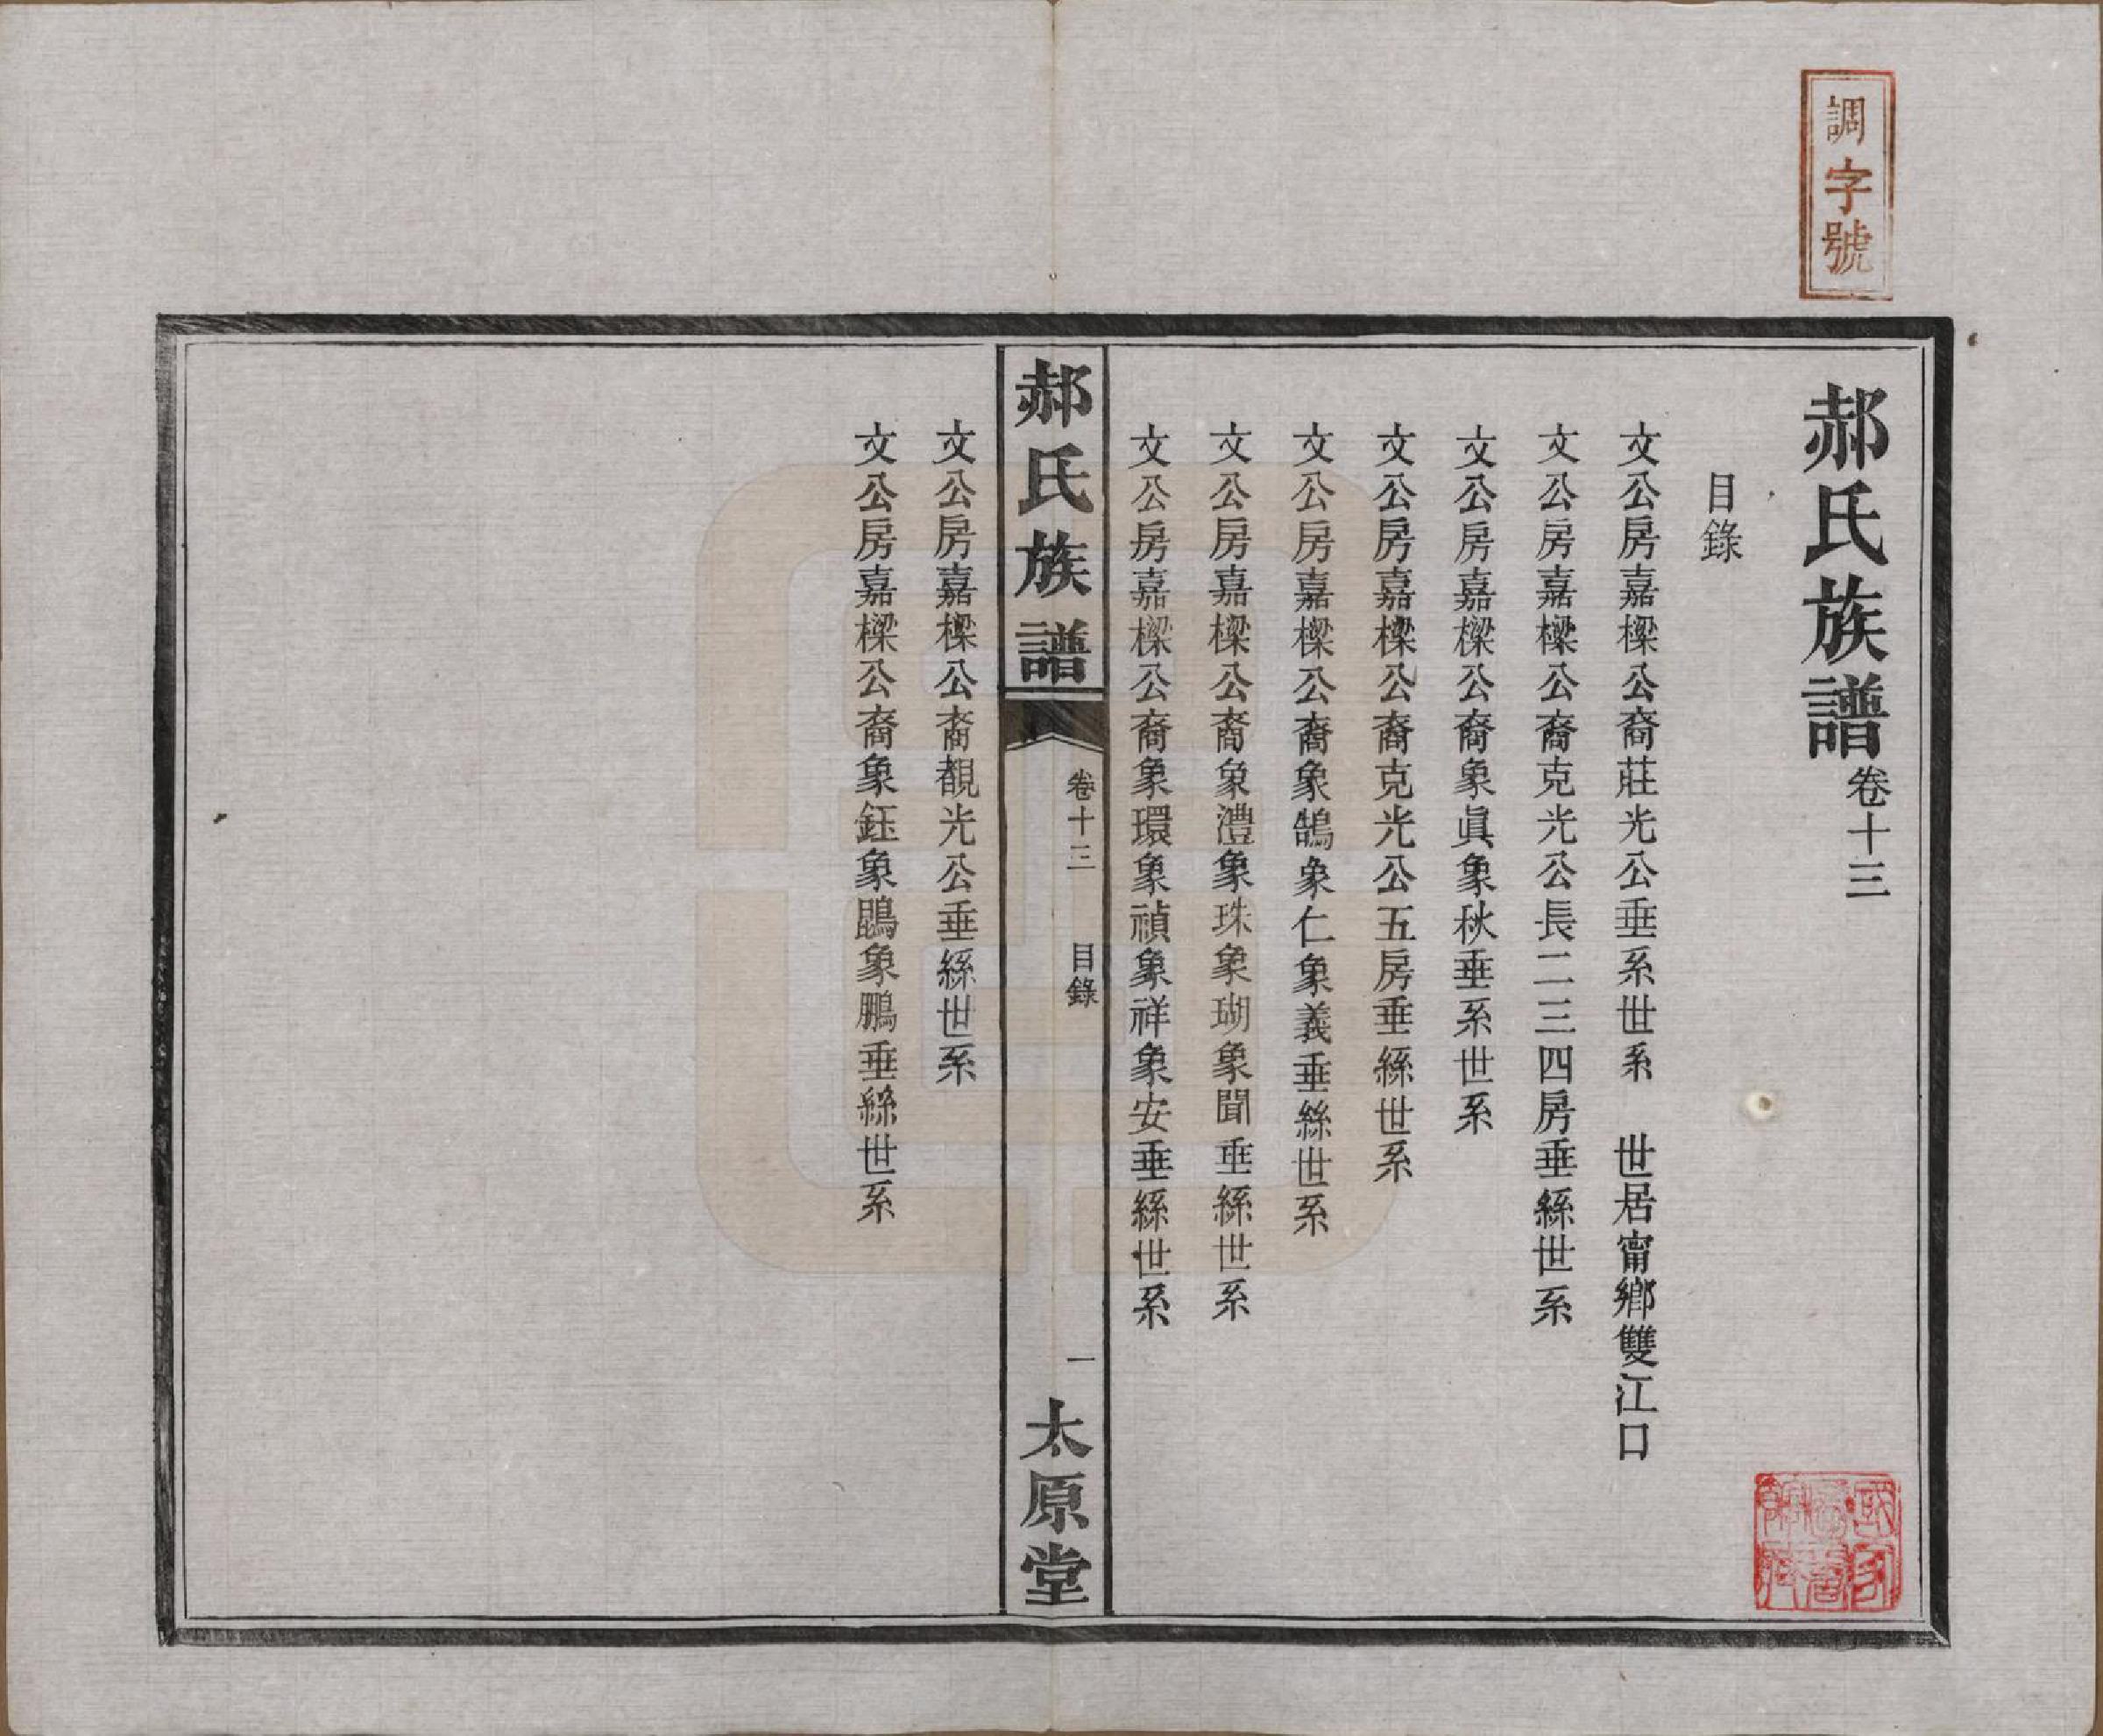 調字號
郝氏族譜卷十三
目錄
文公房嘉樑公裔莊光公垂系世系　世居甯鄉雙江口
文公房嘉樑公裔克光公長二三四房垂絲世系
文公房嘉樑公裔象眞象秋垂系世系
文公房嘉樑公裔克光公五房垂絲世系
文公房嘉樑公裔象鵠象仁象義垂絲世系
文公房嘉樑公裔象澧象珠象瑚象聞垂絲世系
文公房嘉樑公裔象環象禎象祥象安垂絲世系
郝氏族譜
卷十三
目錄
一
太原堂
文公房嘉樑公裔覩光公垂絲世系
文公房嘉樑公裔象鈺象鵾象鵬垂絲世系